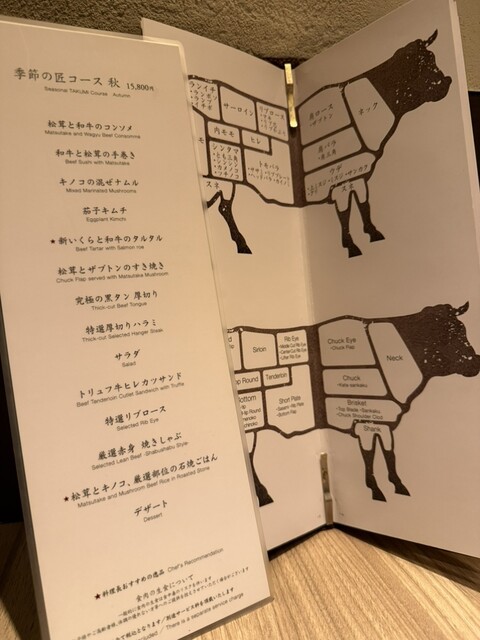 季節の匠コース 秋 15,800円
Seasonal TAKUMI Course Autumn
松茸と和牛のコンソメ
Matsutake and Wagyu Beef Consomme
和牛と松茸の手巻き
Beef Sushi with Matsutake
キノコの混ぜナムル
Mixed Marinated Mushrooms
茄子キムチ
Eggplant Kimchi
★新いくらと和牛のタルタル
Beef Tartar with Salmon roe
松茸とザブトンのすき焼き
Chuck Flap served with Matsutake Mushroom
究極の黒タン 厚切り
Thick-cut Beef Tongue
特選厚切りハラミ
Thick-cut Selected Hanger Steak
サラダ
Salad
トリュフ牛ヒレカツサンド
Beef Tenderloin Cutlet Sandwich with Truffle
特選リブロース
Selected Rib Eye
厳選赤身 焼きしゃぶ
Selected Lean Beef -Shabushabu Style
★松茸とキノコ、厳選部位の石焼ごはん
Matsutake and Mushroom Beef Rice in Roasted Stone
デザート
Dessert
★料理長おすすめの逸品 Chef's Recommendation
食肉の生食について
There is a separate service charge
ランイチ
サーロイン
リブロース
内モモ
ヒレ
シンタマ
トモバラ
スネ
肩ロース
・ザブトン
ネック
肩バラ
・三角バラ
ウデ
Sirloin
Rib Eye
Tenderloin
Short Plate
Chuck Eye
・Chuck Flap
Neck
Chuck
・Kata-sankaku
Brisket
・Top Blade ・Sankaku
・Chuck Shoulder Clod
Shank